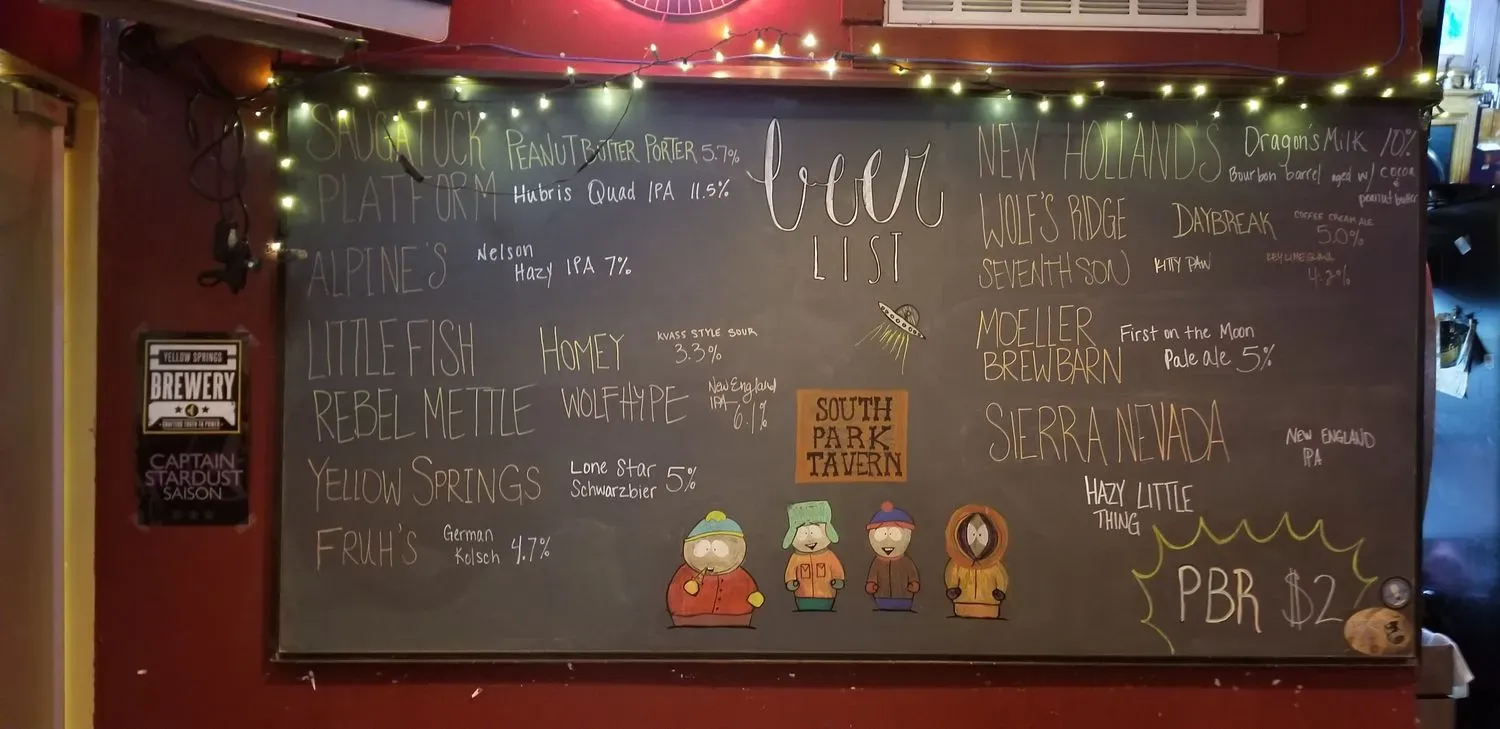 SAUGATUCK PEANUT BUTTER PORTER 5.7%
PLATFORM Hubris Quad IPA 11.5%
ALPINE'S Nelson
Hazy IPA 7%
LITTLE FISH HOMEY KVASS STYLE SOUR
3.3%
REBEL METTLE WOLF HYPE New England
IPA
6.1%
YELLOW SPRINGS Lone Star
Schwarzbier 5%
FRUH'S German
Kolsch 4.7%
beer
LIST
SOUTH
PARK
TAVERN
NEW HOLLAND'S Dragon's Milk 10%
Bourbon barrel aged w/ cocoa
& peanut butter
WOLF'S RIDGE DAYBREAK COFFEE CREAM ALE
5.0%
SEVENTH SON KITTY PAW
4.2%
MOELLER
BREWBARN First on the Moon
Pale ale 5%
SIERRA NEVADA NEW ENGLAND
IPA
HAZY LITTLE
THING
PBR $2
YELLOW SPRINGS
BREWERY
CRAFTING TRUTH TO POWER
CAPTAIN
STARDUST
SAISON